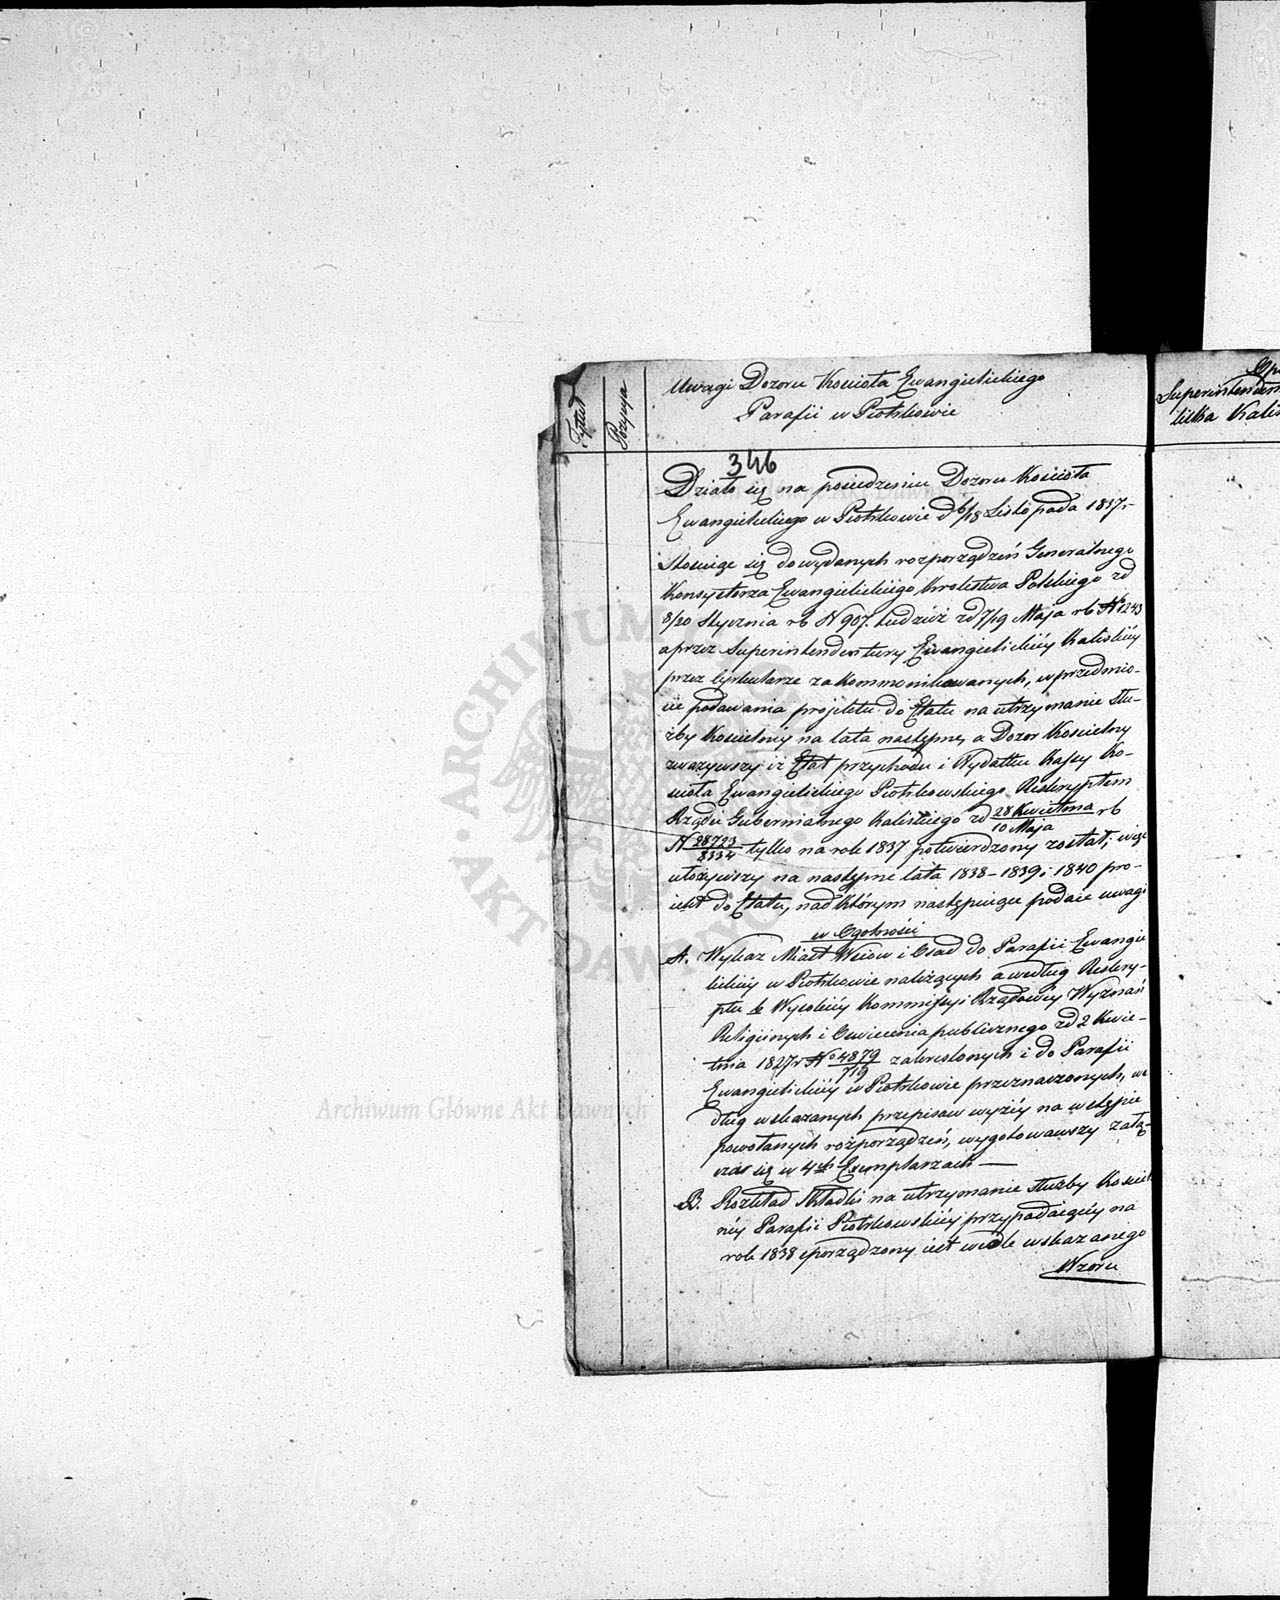 Tytuł
Pozycya
Uwagi Dozoru Kościoła Ewangielickiego
Parafii w Piotrkowie
Superintenden
licka Kalis
346
Działo się na posiedzeniu Dozoru Kościoła
Ewangielickiego w Piotrkowie d 6/18 Listopada 1837 r
Stosuiąc się do wydanych rozporządzeń Generalnego
Konsystorza Ewangielickiego Krolestwa Polskiego zd
8/20 Stycznia rb N 907. tudzież zd 7/19 Maja rb No 1243
a przez Superintendenturę Ewangielickiéy Kaliskiéy
przez Cyrkularze zakommonikowanych, w przedmio-
cie podawania projektu do Etatu na utrzymanie słu-
żby Kościelnéy na lata następne, a Dozor Kościelny
zwazywszy iż Etat przychodu i Wydatku Kassy Ko-
scioła Ewangielickiego Piotrkowskiego Reskryptem
Rządu Gubernialnego Kaliskiego zd 28 Kwietnia/10 Maja rb
N 28723/8334 tylko na rok 1837 potwierdzony został; więc
ułożywszy na następne lata 1838 - 1839 i 1840 pro-
iekt do Etatu, nad którym następuiące podaie uwagi
w Ogolności
A. Wykaz Miast Wsiow i Osad do Parafii Ewangie
lickiéy w Piotrkowie należących a według Reskry-
ptu Wysokiéy Kommissyi Rządowéy Wyznań
Religiinych i Oświecenia publicznego zd 2 Kwie-
tnia 1827 r No 4879/719 zakreslonych i do Parafii
Ewangielickiéy w Piotrkowie przeznaczonych, we
dług wskazanych przepisow wyżéy na wstępie
powołanych rozporządzeń, wygotowawszy załą-
cza się w 4ch Exemplarzach —
B. Rozkład Składki na utrzymanie służby Kościel
néy Parafii Piotrkowskiéy przypadaiącéy na
rok 1838 sporządzony iest wedle wskazanego
Wzoru
ARCHIWUM GŁÓWNE AKT DAWNYCH
Archiwum Główne Akt Dawnych
Archiwum Główne Akt Dawnych